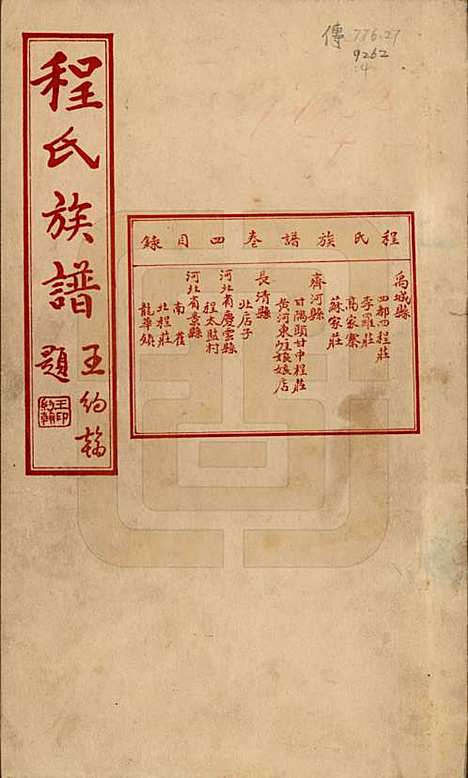 傳 776.27
9262
4
程氏族譜
王約翰
題
程氏族譜卷四目錄
禹城縣
四都四程莊
李羅莊
高家寨
蘇家莊
齊河縣
甘隅頭甘中程莊
黃河東岐娘娘店
長清縣
北店子
河北省慶雲縣
程太監村
河北省景縣
南雀
北程莊
龍華鎮